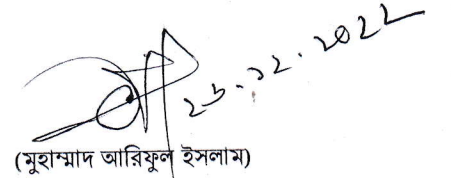 ২৬.১২.২০২২
(মুহাম্মাদ আরিফুল ইসলাম)